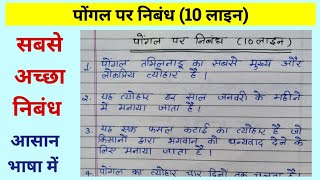 पोंगल पर निबंध (10 लाइन)
सबसे
अच्छा
निबंध
आसान
भाषा में
पोंगल पर निबंध (10 लाइन)
1. पोंगल तमिलनाडु का सबसे मुख्य और
लोकप्रिय त्योहार है।
2. यह त्योहार हर साल जनवरी के महीने
में मनाया जाता है।
3. यह एक फसल कटाई का त्योहार है जो
किसानों द्वारा भगवान को धन्यवाद देने के
लिए मनाया जाता है।
4. पोंगल का त्योहार चार दिनों तक चलता है।